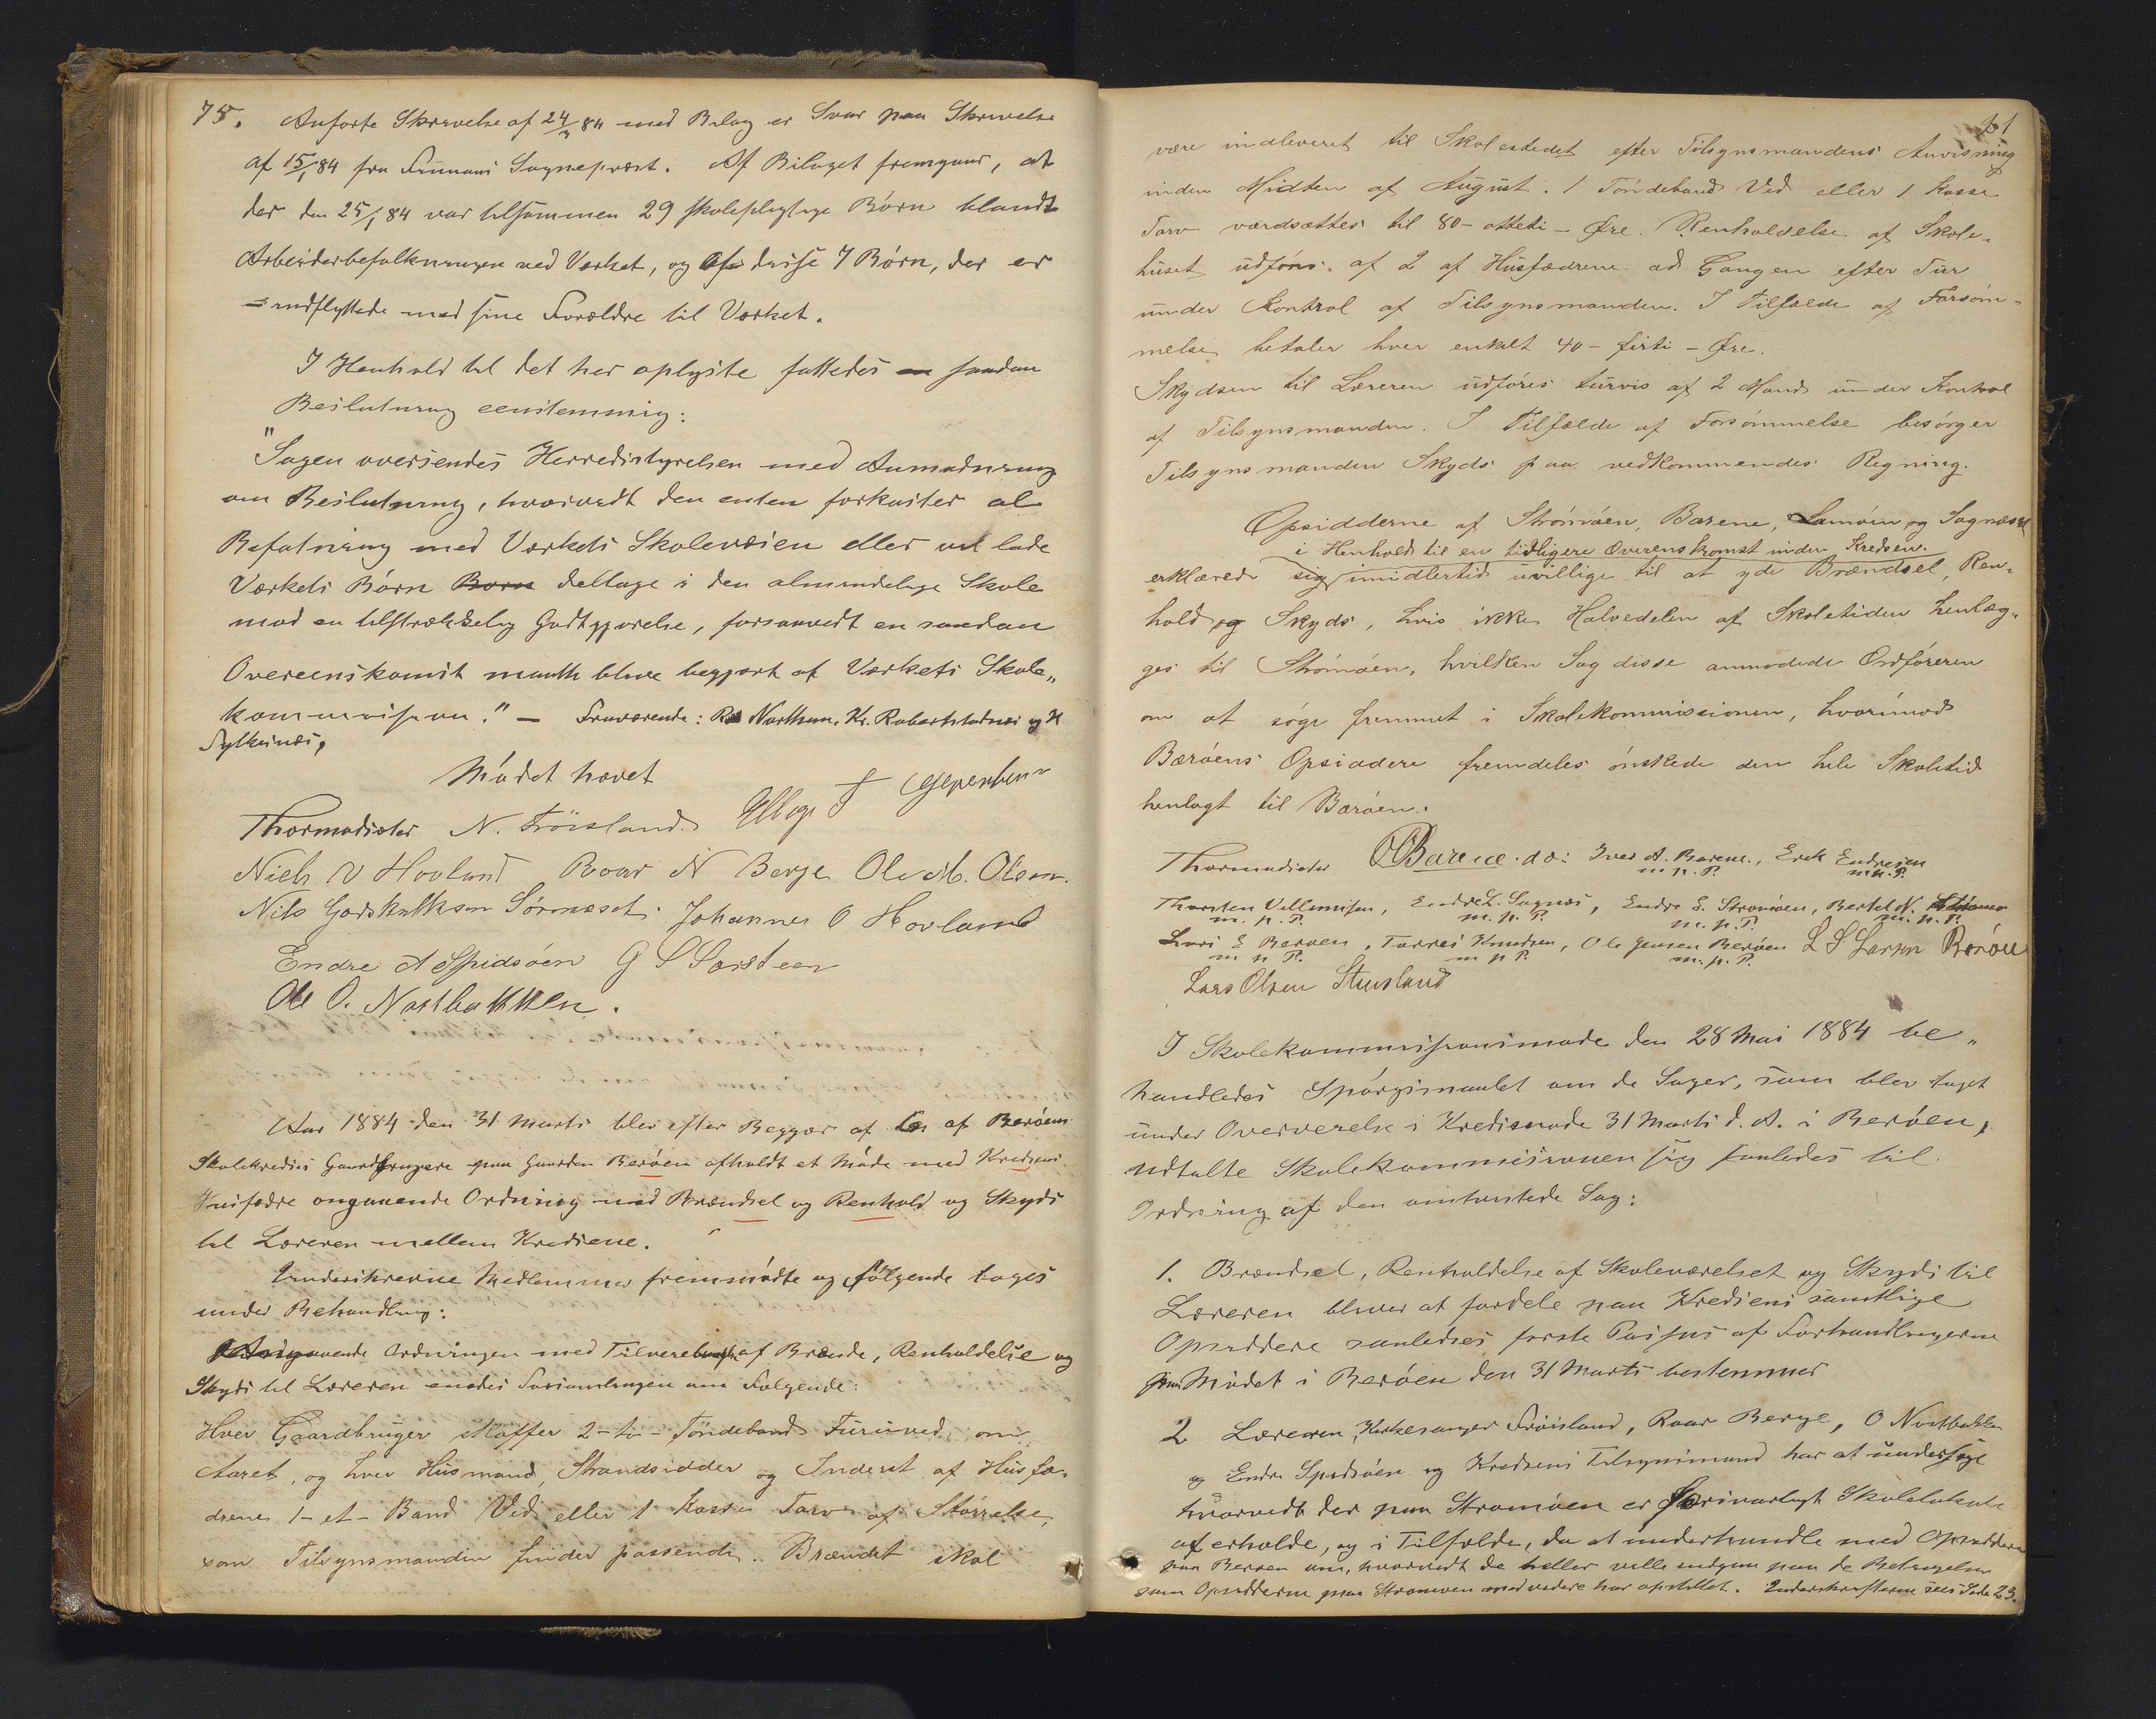 75. Anførte Skrivelse af 24/3 84 med Bilag er Svar paa Skrivelse
af 15/1 84 fra Finnaas Sognepræst. Af Bilaget fremgaar, at
der den 25/1 84 var tilsammen 29 skolepligtige Børn blandt
Arbeiderbefolkningen ved Værket, og af disse 7 Børn, der er
indflyttede med sine Forældre til Værket.
I Henhold til det her oplyste fattedes saadan
Beslutning eenstemmig:
"Sagen oversendes Herredsstyrelsen med Anmodning
om Beslutning, hvorvidt den enten forkaster al
Befatning med Værkets Skolevæsen eller vil lade
Værkets Børn Børn deltage i den almindelige Skole
mod en tilstrækkelig Godtgjørelse, forsaavidt en saadan
Overeenskomst maatte blive begjært af Værkets Skole„
kommission." – Fraværende: Kr. Robertstadnæs og H
Sylkesnæs.
Mødet hævet
Thormodsæter N. Frøisland.
Niels N Hovland Roar N Berge Ole M. Olsen.
Nils Godskalksen Sørnæset. Johannes O Hovland
Endre A Spidsøen G S Sorsteen
Ole O. Nostbakken.
Aar 1884 den 31 Marts blev efter Begjær af En af Berøens
Skolekredses Gaardbrugere paa Gaarden Berøen afholdt et Møde med Kredsens
Husfædre angaaende Ordning med Brændsel og Renhold og Skyds
til Læreren mellem Kredsene.
Underskrevne Medlemmer fremmødte og følgende toges
under Behandling:
Angaaende Ordningen med Tilveiebringelse af Brænde, Renholdelse og
Skyds til Læreren enedes Forsamlingen om Følgende:
Hver Gaardbruger skaffer 2-to- Tøndebaand Furuved om
Aaret, og hver Husmand, Strandsidder og Inderst af Husfæ-
drene 1-et- Baand Ved eller 1 Kasse Torv af Størrelse,
som Tilsynsmanden finder passende. Brændet skal
61
være indleveret til Skolestedet efter Tilsynsmandens Anvisning
inden Midten af August. 1 Tøndebaand Ved eller 1 Kasse
Torv værdsættes til 80 – otteti – Øre. Renholdelse af Skole-
huset udføres af 2 af Husfædrene ad Gangen efter Tur
under Kontrol af Tilsynsmanden. I Tilfælde af Forsøm-
melse betaler hver enkelt 40 – firti – Øre.
Skydsen til Læreren udføres turvis af 2 Mand under Kontrol
af Tilsynsmanden. I Tilfælde af Forsømmelse besørger
Tilsynsmanden Skyds paa vedkommendes Regning.
Opsidderne af Strømøen, Barene, og Sagnæset
i Henhold til en tidligere Overenskomst inden Kredsen.
erklærede sig imidlertid uvillige til at yde Brændsel, Ren-
hold og Skyds, hvis ikke Halvedelen af Skoletiden henlæg-
ges til Strømøen, hvilken Sag disse anmodede Ordføreren
om at søge fremmet i Skolekommissionen, hvorimod
Bærøens Opsiddere fremdeles ønskede den hele Skoletid
henlagt til Bærøen.
Thormodsæter O Barene. do: Iver A. Barene., Erik Endresen
m. p. P. m. p. P.
Thorsten Villumsen, Endre L. Sagnæs, Endre E. Strømøen, Bertel N.
m. p. P. m. p. P. m. p. P. m. p. P.
Lars E Berøen, Torres Knudsen, Ole Jensen Berøen L S Larsen Berøen
m p P. m p P. m. p. P.
Lars Olsen Stusland
I Skolekommissionsmøde den 28 Mai 1884 be„
handledes Spørgsmaalet om de Sager, som blev taget
under Overveielse i Kredsmøde 31 Marts d. A. i Berøen,
udtalte Skolekommissionen sig saaledes til
Ordning af den omtvistede Sag:
1. Brændsel, Renholdelse af Skoleværelset og Skyds til
Læreren bliver at fordele paa Kredsens samtlige
Opsiddere saaledes første Passus af Forhandlingerne
paa Mødet i Berøen den 31 Marts bestemmer
2 Læreren, Kirkesanger Frøisland, Roar Berge, O Nostbakken
og Endre Spidsøen og Kredsens Tilsynsmand har at undersøge
hvorvidt der paa Strømøen er forsvarligt Skolelokale
at erholde, og i Tilfælde, da at underhandle med Opsidderne
paa Berøen om, hvorvidt de heller ville indgaa paa de Betingelser
som Opsidderne paa Strømøen med vedere har opstillet. Underskrifterne sees Side 23.